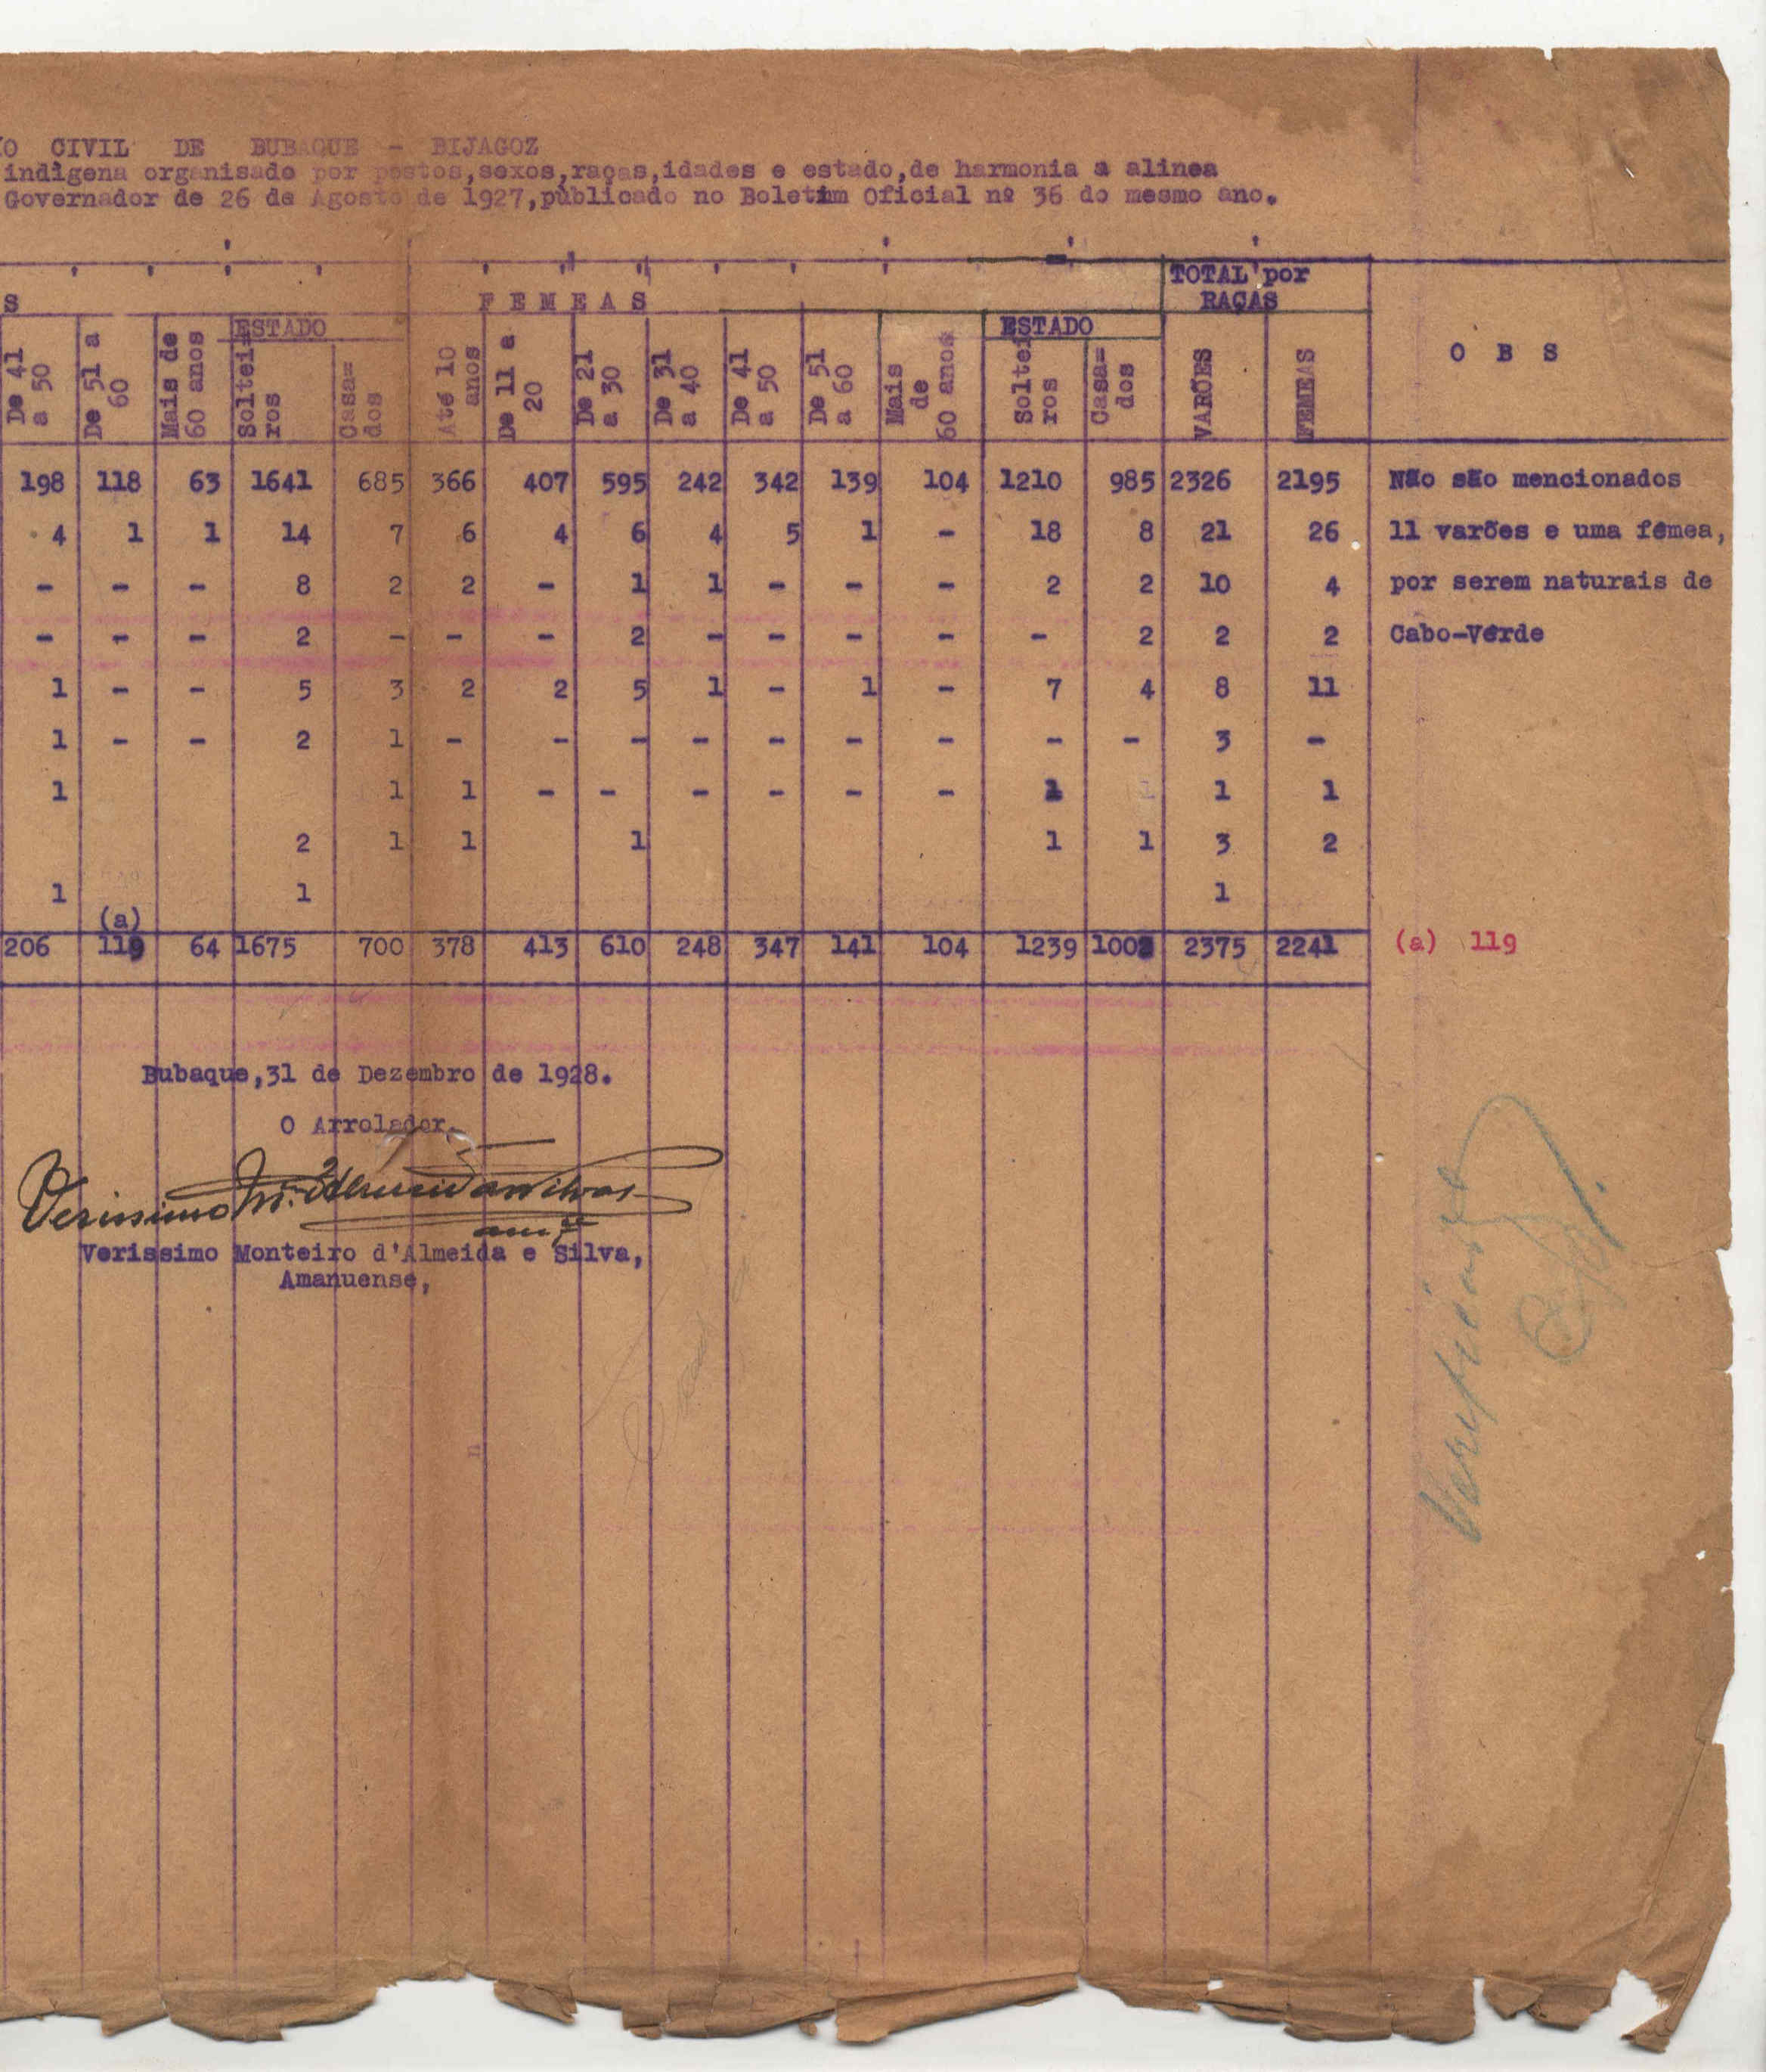 O CIVIL DE BUBAQUE - BIJAGOZ
indigena organisado por postos,sexos,raças,idades e estado,de harmonia a alinea
Governador de 26 de Agosto de 1927,publicado no Boletim Oficial nº 36 do mesmo ano.
S F E M E A S TOTAL por RAÇAS
ESTADO ESTADO O B S
De 41 a 50 De 51 a 60 Mais de 60 anos Soltei- ros Casa= dos Até 10 anos De 11 a 20 De 21 a 30 De 31 a 40 De 41 a 50 De 51 a 60 Mais de 60 anos Soltei ros Casa= dos VARÕES FEMEAS
198 118 63 1641 685 366 407 595 242 342 139 104 1210 985 2326 2195 Não são mencionados
4 1 1 14 7 6 4 6 4 5 1 - 18 8 21 26 11 varões e uma fêmea,
- - - 8 2 2 - 1 1 - - - 2 2 10 4 por serem naturais de
- - - 2 - - - 2 - - - - - 2 2 2 Cabo-Verde
1 - - 5 3 2 2 5 1 - 1 - 7 4 8 11
1 - - 2 1 - - - - - - - - - 3 -
1 1 1 - - - - - - 1 1 1
2 1 1 1 1 1 3 2
1 1 1
(a)
206 119 64 1675 700 378 413 610 248 347 141 104 1239 1002 2375 2241 (a) 119
Bubaque,31 de Dezembro de 1928.
O Arrolador,
Verissimo M. d'Almeida e Silva
Verissimo Monteiro d'Almeida e Silva,
Amanuense,
n